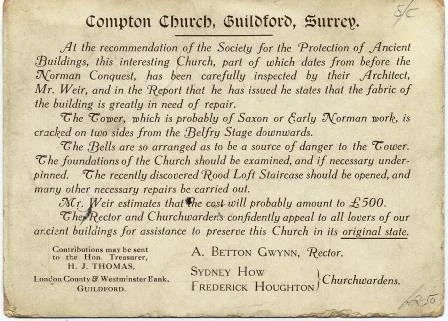 Compton Church, Guildford, Surrey.
At the recommendation of the Society for the Protection of Ancient
Buildings, this interesting Church, part of which dates from before the
Norman Conquest, has been carefully inspected by their Architect,
Mr. Weir, and in the Report that he has issued he states that the fabric of
the building is greatly in need of repair.
The Tower, which is probably of Saxon or Early Norman work, is
cracked on two sides from the Belfry Stage downwards.
The Bells are so arranged as to be a source of danger to the Tower.
The foundations of the Church should be examined, and if necessary under-
pinned. The recently discovered Rood Loft Staircase should be opened, and
many other necessary repairs be carried out.
Mr. Weir estimates that the cost will probably amount to £500.
The Rector and Churchwardens confidently appeal to all lovers of our
ancient buildings for assistance to preserve this Church in its original state.
Contributions may be sent
to the Hon. Treasurer,
H. J. THOMAS,
London County & Westminster Bank,
GUILDFORD.
A. BETTON GWYNN, Rector.
SYDNEY HOW
FREDERICK HOUGHTON
Churchwardens.